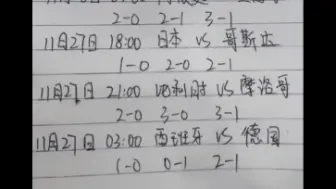 2-0 2-1 3-1
11月27日 18:00 日本 VS 哥斯达
1-0 2-0 2-1
11月27日 21:00 比利时 VS 摩洛哥
2-0 3-0 3-1
11月27日 03:00 西班牙 VS 德国
1-0 0-1 2-1